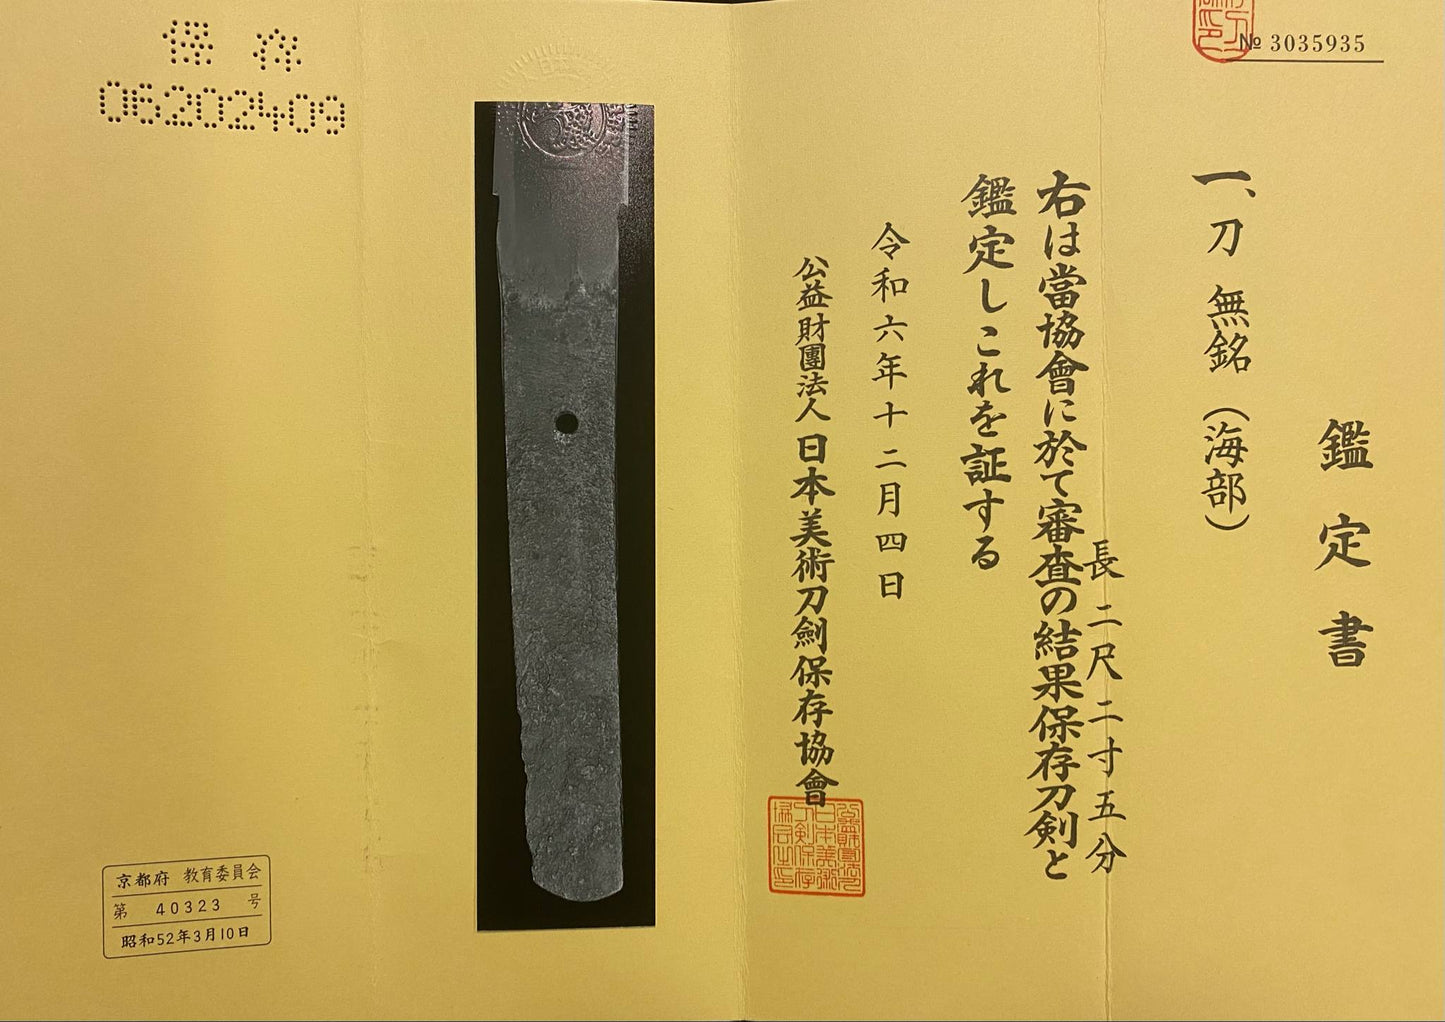 № 3035935
鑑定書
一、刀 無銘（海部）
長 二尺二寸五分
右は當協會に於て審査の結果保存刀剣と
鑑定しこれを証する
令和六年十二月四日
公益財團法人日本美術刀劍保存協會
保存
06202409
京都府 教育委員会
第 40323 号
昭和52年3月10日